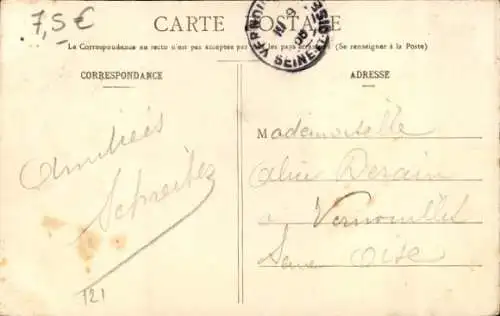 7,5 €
CARTE POSTALE
La Correspondance au recto n'est pas acceptée par les pays étrangers (Se renseigner à la Poste)
CORRESPONDANCE
ADRESSE
Amitiés
Mademoiselle
Alice Derain
à Vernouillet
Seine Oise
121